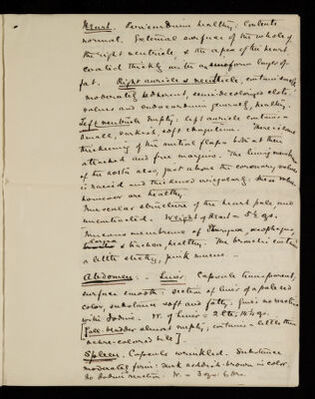 Heart. Pericardium healthy: Contents
normal. External surface of the whole of
the right ventricle, & the apex of the heart
coated thickly with an layer of
fat. Right auricle & ventricle, contain small,
moderately adherent, semi-decolorized clots:
valves and endocardium generally, healthy.
Left ventricle empty: left auricle contains a
small, darkish, soft coagulum. There is some
thickening of the mitral flaps both at their
attached and free margins. The lining membrane
of the aorta also, just above the coronary valves,
is raised and thickened irregularly: these valves
however are healthy.
Muscular structure of the heart pale, and
Weight of Heart = 5¾ ozs.
Mucous membrane of Pharynx, œsophagus,
larynx & trachea, healthy. The bronchi contain
a little sticky, pink mucus. —
Abdomen: — Liver. Capsule transparent,
surface smooth: section of liver of a pale red
color, substance soft and fatty: gives no reaction
with Iodine. Wt. of Liver = 2 lbs.
[Gall-bladder almost empty, contains a little thin
ochre-colored bile].
Spleen. Capsule wrinkled. Substance
moderately firm: dark reddish-brown in color.
No Iodine reaction. Wt. = 3 ozs.